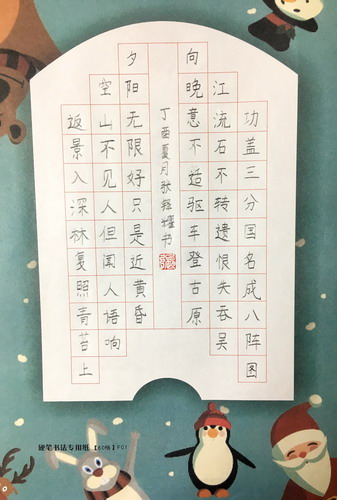 功盖三分国名成八阵图
江流石不转遗恨失吞吴
向晚意不适驱车登古原
丁酉夏月张书
夕阳无限好只是近黄昏
空山不见人但闻人语响
返景入深林复照青苔上
硬笔书法专用纸【60格】F01